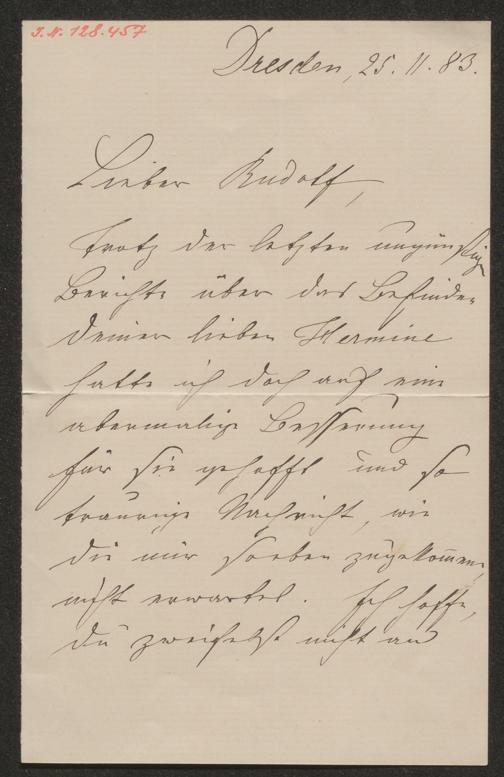 I.N. 128.457
Dresden, 25. 11. 83.
Lieber Rudolf,
Trotz der letzten ungünstigen
Berichte über das Befinden
Deiner lieben Hermine
hatte ich doch auf eine
abermalige Besserung
für sie gehofft und so
traurige Nachricht, wie
die mir soeben zugekommene,
nicht erwartet. Ich hoffe,
Du zweifelst nicht an